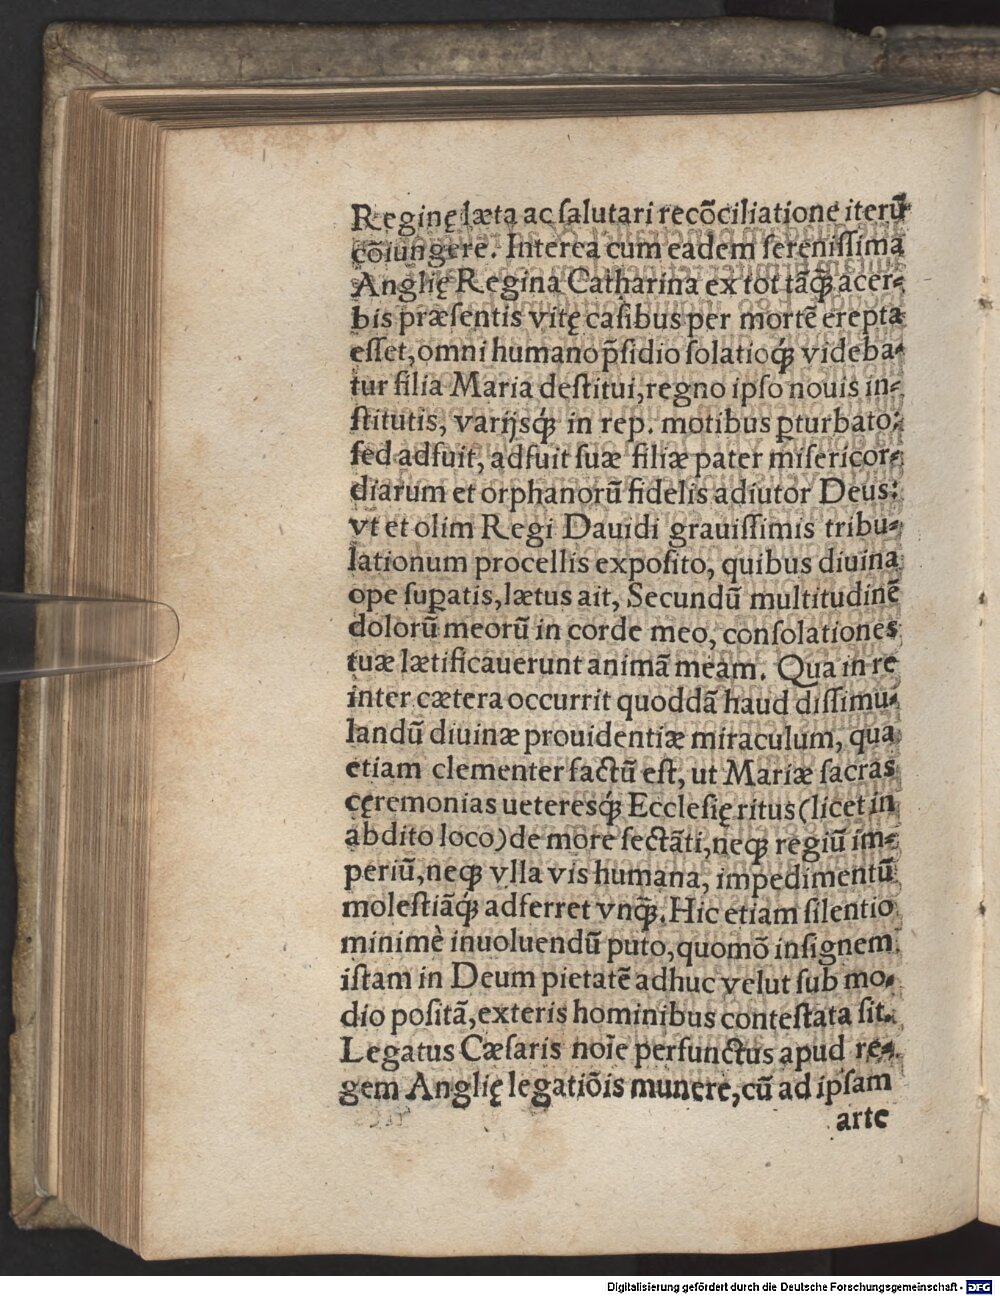 Reginę læta ac ſalutari recōciliatione iterū
cōiungere. Interea cum eadem ſereniſſima
Anglię Regina Catharina ex tot tāq́ꝫ acer⸗
bis præſentis vitę caſibus per mortē erepta
eſſet, omni humano p̄ſidio ſolatioq́ꝫ videba⸗
tur filia Maria deſtitui, regno ipſo nouis in⸗
ſtitutis, varijsq́ꝫ in rep. motibus ꝑturbato:
ſed adfuit, adfuit ſuæ filiæ pater miſericor⸗
diarum et orphanorū fidelis adiutor Deus:
vt et olim Regi Dauidi grauiſſimis tribu⸗
lationum procellis expoſito, quibus diuina
ope ſuꝑatis, lætus ait, Secundū multitudinē
dolorū meorū in corde meo, conſolationes
tuæ lætificauerunt animā meam. Qua in re
inter cætera occurrit quoddā haud diſſimu⸗
landū diuinæ prouidentiæ miraculum, qua
etiam clementer factū eſt, ut Mariæ ſacras
cęremonias ueteresq́ꝫ Eccleſię ritus (licet in
abdito loco) de more ſectāti, neqꝫ regiū im⸗
periū, neqꝫ vlla vis humana, impedimentū
moleſtiāq́ꝫ adferret vnq̄ꝫ. Hic etiam ſilentio
minimè inuoluendū puto, quomō inſignem
iſtam in Deum pietatē adhuc velut ſub mo⸗
dio poſitā, exteris hominibus conteſtata ſit.
Legatus Cæſaris noīe perfunctus apud re⸗
gem Anglię legatiōis munere, cū ad ipſam
arte
Digitalisierung gefördert durch die Deutsche Forschungsgemeinschaft - DFG